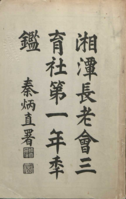 湘潭長老會三
育社第一年季
鑑
秦炳直署